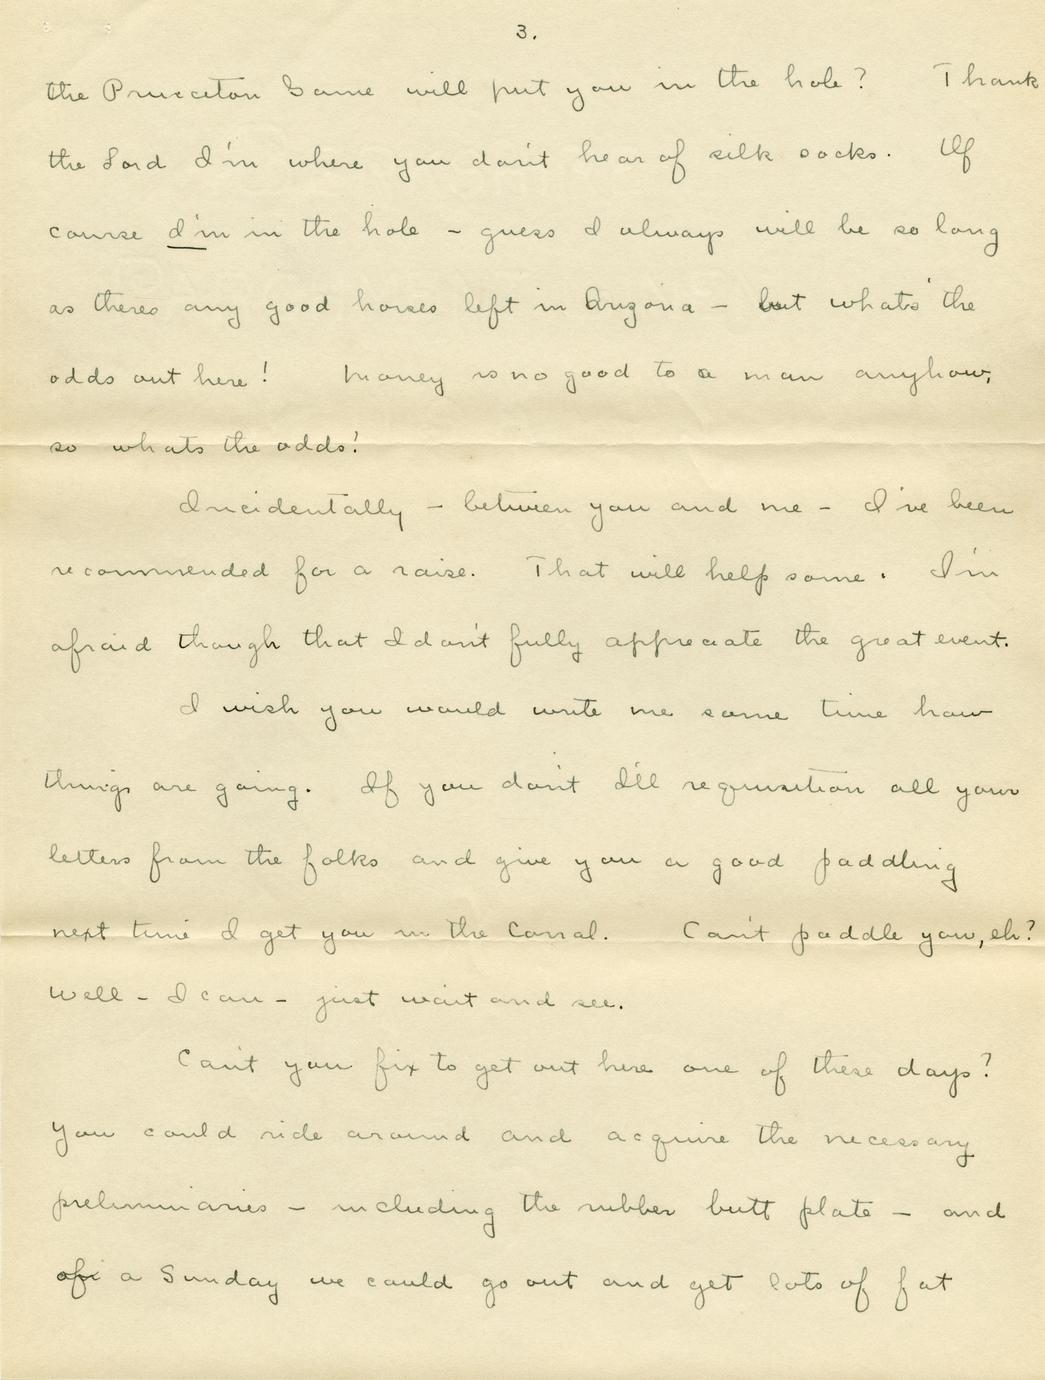 3.
the Princeton Game will put you in the hole? Thank
the Lord I'm where you don't hear of silk socks. Of
course I'm in the hole - guess I always will be so long
as theres any good horses left in Arizona - but whats' the
odds out here! Money is no good to a man anyhow,
so whats the odds!
Incidentally - between you and me - I've been
recommended for a raise. That will help some. I'm
afraid though that I don't fully appreciate the great event.
I wish you would write me some time how
things are going. If you don't I'll requisition all your
letters from the folks and give you a good paddling
next time I get you in the Corral. Can't paddle you, eh?
Well - I can - just wait and see.
Can't you fix to get out here one of these days?
You could ride around and acquire the necessary
preliminaries - including the rubber butt plate - and
a Sunday we could go out and get lots of fat